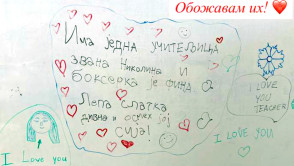 Обожавам их!
Има једна учитељица
звана Николина и
боксерка је фина
Лепа слатка
дивна и осмех јој
сија!
I LOVE
YOU
TEACHER
I LOVE YOU
I Love you